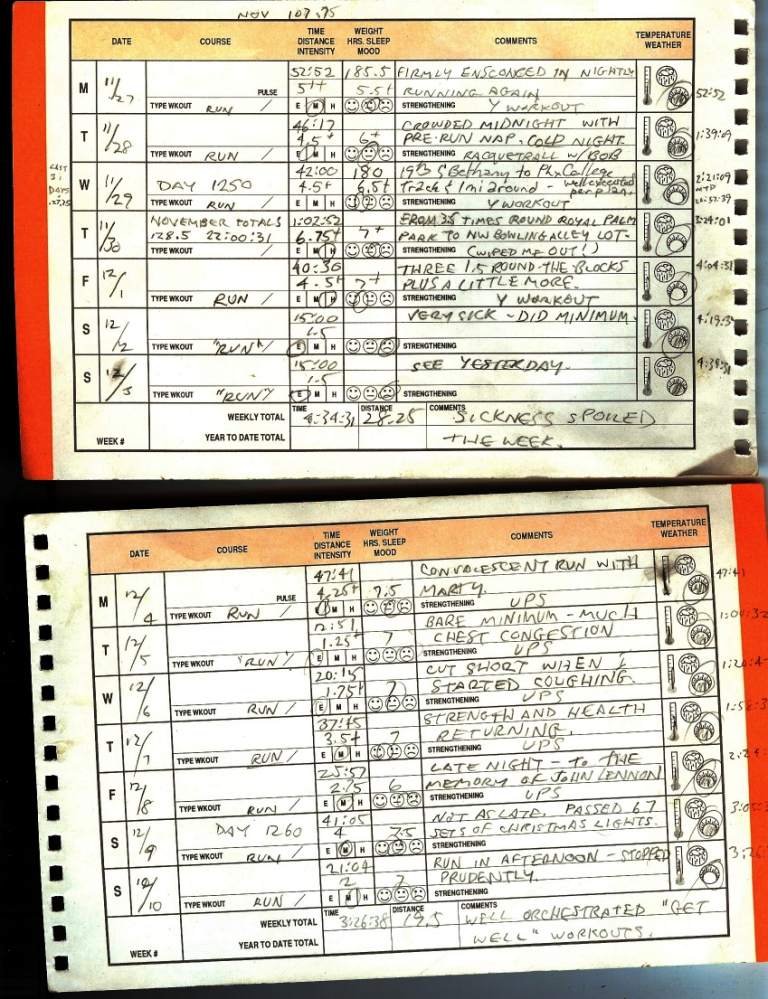 NOV 107.75
DATE COURSE TIME DISTANCE INTENSITY WEIGHT HRS. SLEEP MOOD COMMENTS TEMPERATURE WEATHER
M 11/27 52:52 185.5 FIRMLY ENSCONCED IN NIGHTLY
PULSE 5.5+ RUNNING AGAIN 52:52
TYPE WKOUT RUN / E M H STRENGTHENING Y WORKOUT
T 11/28 46:17 CROWDED MIDNIGHT WITH
4.5+ 6+ PRE-RUN NAP. COLD NIGHT. 1:39:09
TYPE WKOUT RUN / E M H STRENGTHENING RACQUETBALL W/BOB
LAST 31 DAYS
W 11/29 DAY 1250 42:00 180 19th & Bethany to Phx College
4.5+ 6.5+ Track & 1 mi around - well executed per plan. 2:21:09
MTD
TYPE WKOUT RUN / E M H STRENGTHENING Y WORKOUT
T 11/30 NOVEMBER TOTALS 1:02:52 FROM 3.5 TIMES ROUND ROYAL PALM 3:24:01
128.5 22:00:31 6.75+ 7+ PARK TO NW BOWLING ALLEY LOT-
TYPE WKOUT E M H STRENGTHENING (WIPED ME OUT!)
F 12/1 40:30 THREE 1.5 ROUND-THE BLOCKS 4:04:31
4.5+ 7+ PLUS A LITTLE MORE.
TYPE WKOUT RUN / E M H STRENGTHENING Y WORKOUT
S 12/2 15:00 VERY SICK - DID MINIMUM.
1.5
TYPE WKOUT "RUN" E M H STRENGTHENING
S 12/3 15:00 SEE YESTERDAY.
1.5
TYPE WKOUT "RUN" E M H STRENGTHENING
WEEKLY TOTAL TIME 4:34:31 DISTANCE 28.25 COMMENTS SICKNESS SPOILED
WEEK # YEAR TO DATE TOTAL THE WEEK.
DATE COURSE TIME DISTANCE INTENSITY WEIGHT HRS. SLEEP MOOD COMMENTS TEMPERATURE WEATHER
M 12/4 47:41 CONVALESCENT RUN WITH 47:41
PULSE 4.25+ 7.5 MARTY.
TYPE WKOUT RUN / E M H STRENGTHENING UPS
T 12/5 12:51 BARE MINIMUM - MUCH
1.25+ 7 CHEST CONGESTION
TYPE WKOUT "RUN" E M H STRENGTHENING UPS
W 12/6 20:15 CUT SHORT WHEN I
1.75+ 7 STARTED COUGHING.
TYPE WKOUT RUN / E M H STRENGTHENING UPS
T 12/7 37:45 STRENGTH AND HEALTH
3.5+ 7 RETURNING.
TYPE WKOUT RUN / E M H STRENGTHENING UPS
F 12/8 25:57 LATE NIGHT - TO THE
2.75 6 MEMORY OF JOHN LENNON
TYPE WKOUT RUN / E M H STRENGTHENING UPS
S 12/9 DAY 1260 41:05 NOT AS LATE. PASSED 67
4 7.5 SETS OF CHRISTMAS LIGHTS.
TYPE WKOUT RUN / E M H STRENGTHENING
S 12/10 21:04 RUN IN AFTERNOON - STOPPED
2 7 PRUDENTLY.
TYPE WKOUT RUN / E M H STRENGTHENING
WEEKLY TOTAL TIME 3:26:38 DISTANCE 19.5 COMMENTS WELL ORCHESTRATED "GET
WEEK # YEAR TO DATE TOTAL WELL" WORKOUTS.